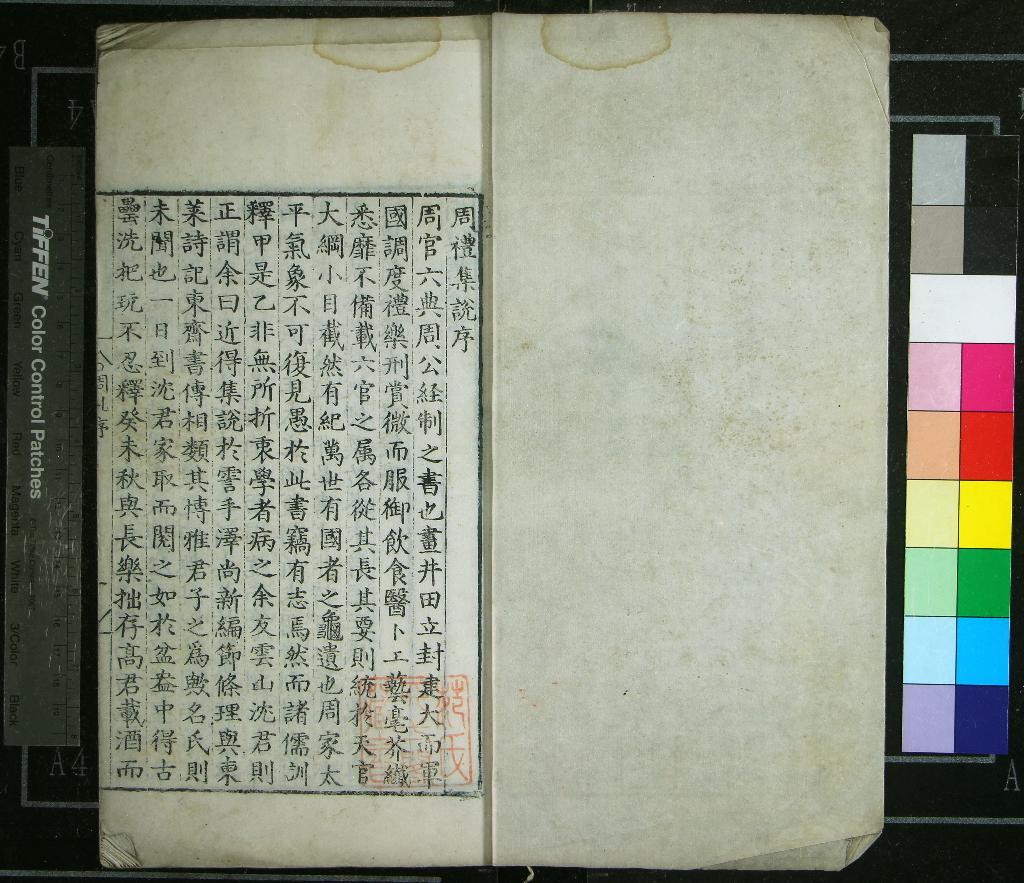 周禮集說序
周官六典周公経制之書也畫井田立封建大而軍
國調度禮樂刑賞微而服御飲食醫卜工藝毫芥纖
悉靡不備載六官之属各從其長其要則統於天官
大綱小目截然有紀萬世有國者之龜遺也周家太
平氣象不可復見愚於此書竊有志焉然而諸儒訓
釋甲是乙非無所折衷學者病之余友雲山沈君則
正謂余曰近得集說於霅手澤尚新編節條理與東
莱詩記東齋書傳相類其博雅君子之爲歟名氏則
未聞也一日到沈君家取而閱之如於盆盎中得古
罍洗把玩不忍釋癸未秋與長樂拙存高君載酒而
序
TIFFEN Color Control Patches
Blue Cyan Green Yellow Red Magenta White 3/Color Black
A4
A4